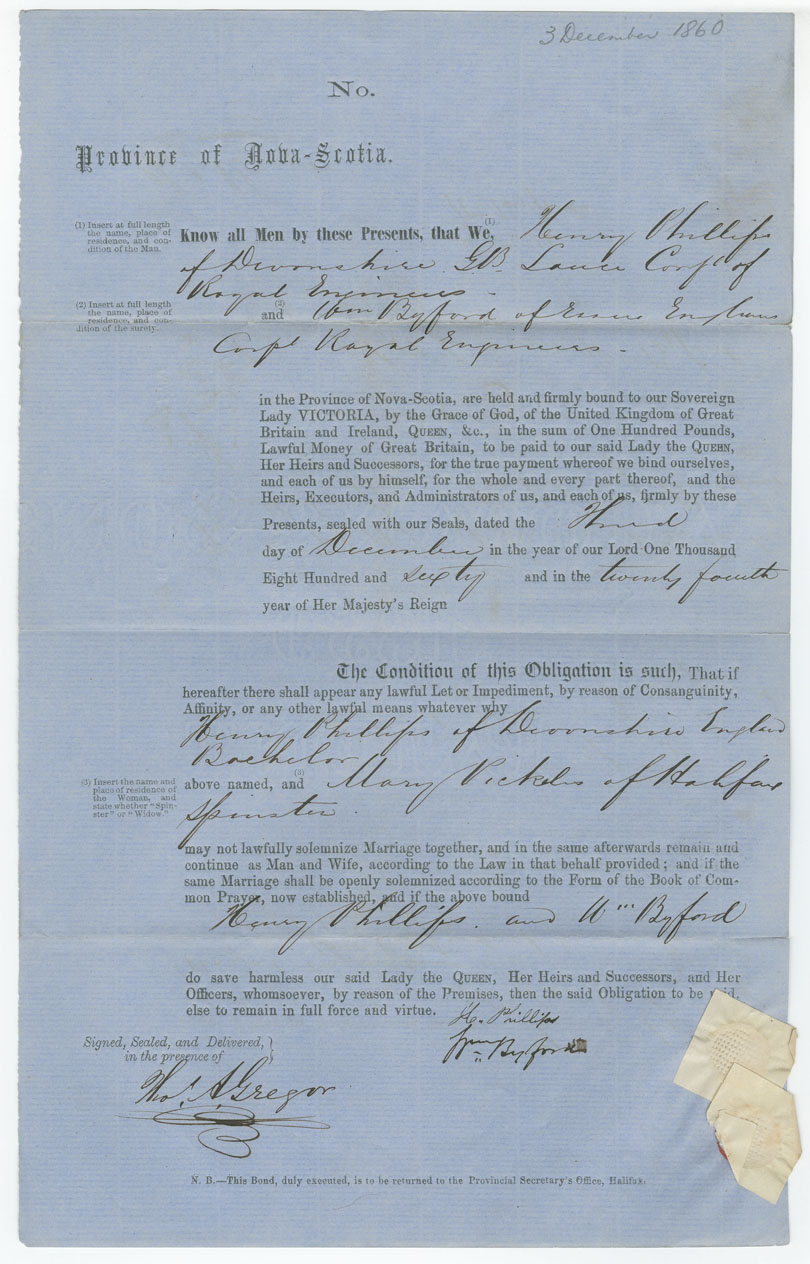 3 December 1860
No.
Province of Nova-Scotia.
(1) Insert at full length
the name, place of
residence, and con-
dition of the Man.
Know all Men by these Presents, that We, (1) Henry Phillips
of Devonshire G.B. Lance Corpl of
Royal Engineers
(2) Insert at full length
the name, place of
residence, and con-
dition of the surety.
and (2) Wm Byford of Essex England
Corpl Royal Engineers
in the Province of Nova-Scotia, are held and firmly bound to our Sovereign
Lady VICTORIA, by the Grace of God, of the United Kingdom of Great
Britain and Ireland, QUEEN, &c., in the sum of One Hundred Pounds,
Lawful Money of Great Britain, to be paid to our said Lady the QUEEN,
Her Heirs and Successors, for the true payment whereof we bind ourselves,
and each of us by himself, for the whole and every part thereof, and the
Heirs, Executors, and Administrators of us, and each of us, firmly by these
Presents, sealed with our Seals, dated the Third
day of December in the year of our Lord One Thousand
Eight Hundred and sixty and in the twenty fourth
year of Her Majesty's Reign
The Condition of this Obligation is such, That if
hereafter there shall appear any lawful Let or Impediment, by reason of Consanguinity,
Affinity, or any other lawful means whatever why
Henry Phillips of Devonshire England
Bachelor
(3) Insert the name and
place of residence of
the Woman, and
state whether "Spin-
ster" or "Widow."
above named, and (3) Mary of Halifax
Spinster.
may not lawfully solemnize Marriage together, and in the same afterwards remain and
continue as Man and Wife, according to the Law in that behalf provided; and if the
same Marriage shall be openly solemnized according to the Form of the Book of Com-
mon Prayer, now established, and if the above bound
Henry Phillips. and Wm Byford
do save harmless our said Lady the QUEEN, Her Heirs and Successors, and Her
Officers, whomsoever, by reason of the Premises, then the said Obligation to be void,
else to remain in full force and virtue.
H. Phillips
Wm Byford
Signed, Sealed, and Delivered,
in the presence of
Thos. A Gregor
N. B.—This Bond, duly executed, is to be returned to the Provincial Secretary's Office, Halifax.